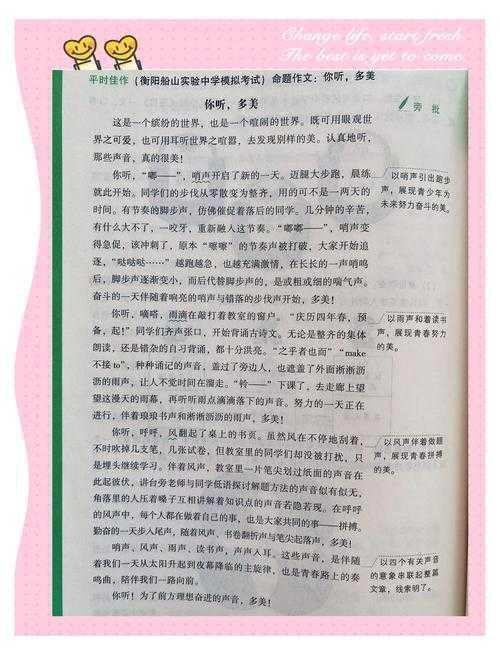 Change life, start fresh
The best is yet to come.
平时佳作 (衡阳船山实验中学模拟考试) 命题作文：你听，多美
旁 批
你听，多美
这是一个缤纷的世界，也是一个喧闹的世界。既可用眼观世
界之可爱，也可用耳听世界之喧嚣，去发现别样的美。认真地听，
那些声音，真的很美！
你听，“嘟——”，哨声开启了新的一天。迈腿大步跑，晨练
就此开始。同学们的步伐从零散变为整齐，用的可不是一两天的
时间。有节奏的脚步声，仿佛催促着落后的同学。几分钟的辛苦，
有什么大不了，一咬牙，重新融入这节奏。“嘟嘟——”，哨声变
得急促，该冲刺了，原本“嚓嚓”的节奏声被打破，大家开始追
逐，“哒哒哒……”越跑越急，也越充满激情，在长长的一声哨鸣
后，脚步声逐渐变小，而后代替脚步声的，是或粗或细的喘气声。
奋斗的一天伴随着响亮的哨声与错落的步伐声开始，多美！
以哨声引出跑步
声，展现青少年为
未来努力奋斗的美。
你听，嘀嗒，雨滴在敲打着教室的窗户。“庆历四年春，预
备，起！”同学们齐声张口，开始背诵古诗文。无论是整齐的集体
朗读，还是错杂的自习背诵，都十分洪亮。“之乎者也而”“make
不接to”，种种诵记的声音，盖过了旁边人，也遮盖了外面淅淅沥
沥的雨声，让人不觉时间在溜走。“铃——”下课了，去走廊上望
望这漫天的雨幕，再听听雨点滴滴落下的声音。努力的一天正在
进行，伴着琅琅书声和淅淅沥沥的雨声，多美！
以雨声和着读书
声，展现青春努力
的美。
你听，呼呼，风翻起了桌上的书页。虽然风在不停地刮着，
不时吹掉几支笔，几张试卷，但教室里的同学们却没有被打扰，只
是埋头继续学习。伴着风声，教室里一片笔尖划过纸面的声音在
此起彼伏，讲台旁老师与同学低语探讨解题方法的声音似有似无，
角落里的人压着嗓子互相讲解着知识点的声音若隐若现。在呼呼
的风声中，每个人都在做着自己的事，也是大家共同的事——拼搏。
勤奋的一天步入尾声，随着风声、书卷翻折声与笔尖起落声，多美！
以风声伴着做题
声，展现青春拼搏
的美。
哨声、风声、雨声、读书声，声声入耳。这些声音，是伴随
着我们一天从太阳升起到夜幕降临的主旋律，也是青春路上的奏
鸣曲，陪伴我们一路向前。
你听！为了前方理想奋进的声音，多美！
以四个有关声音
的意象串联起整篇
文章，线索明了。